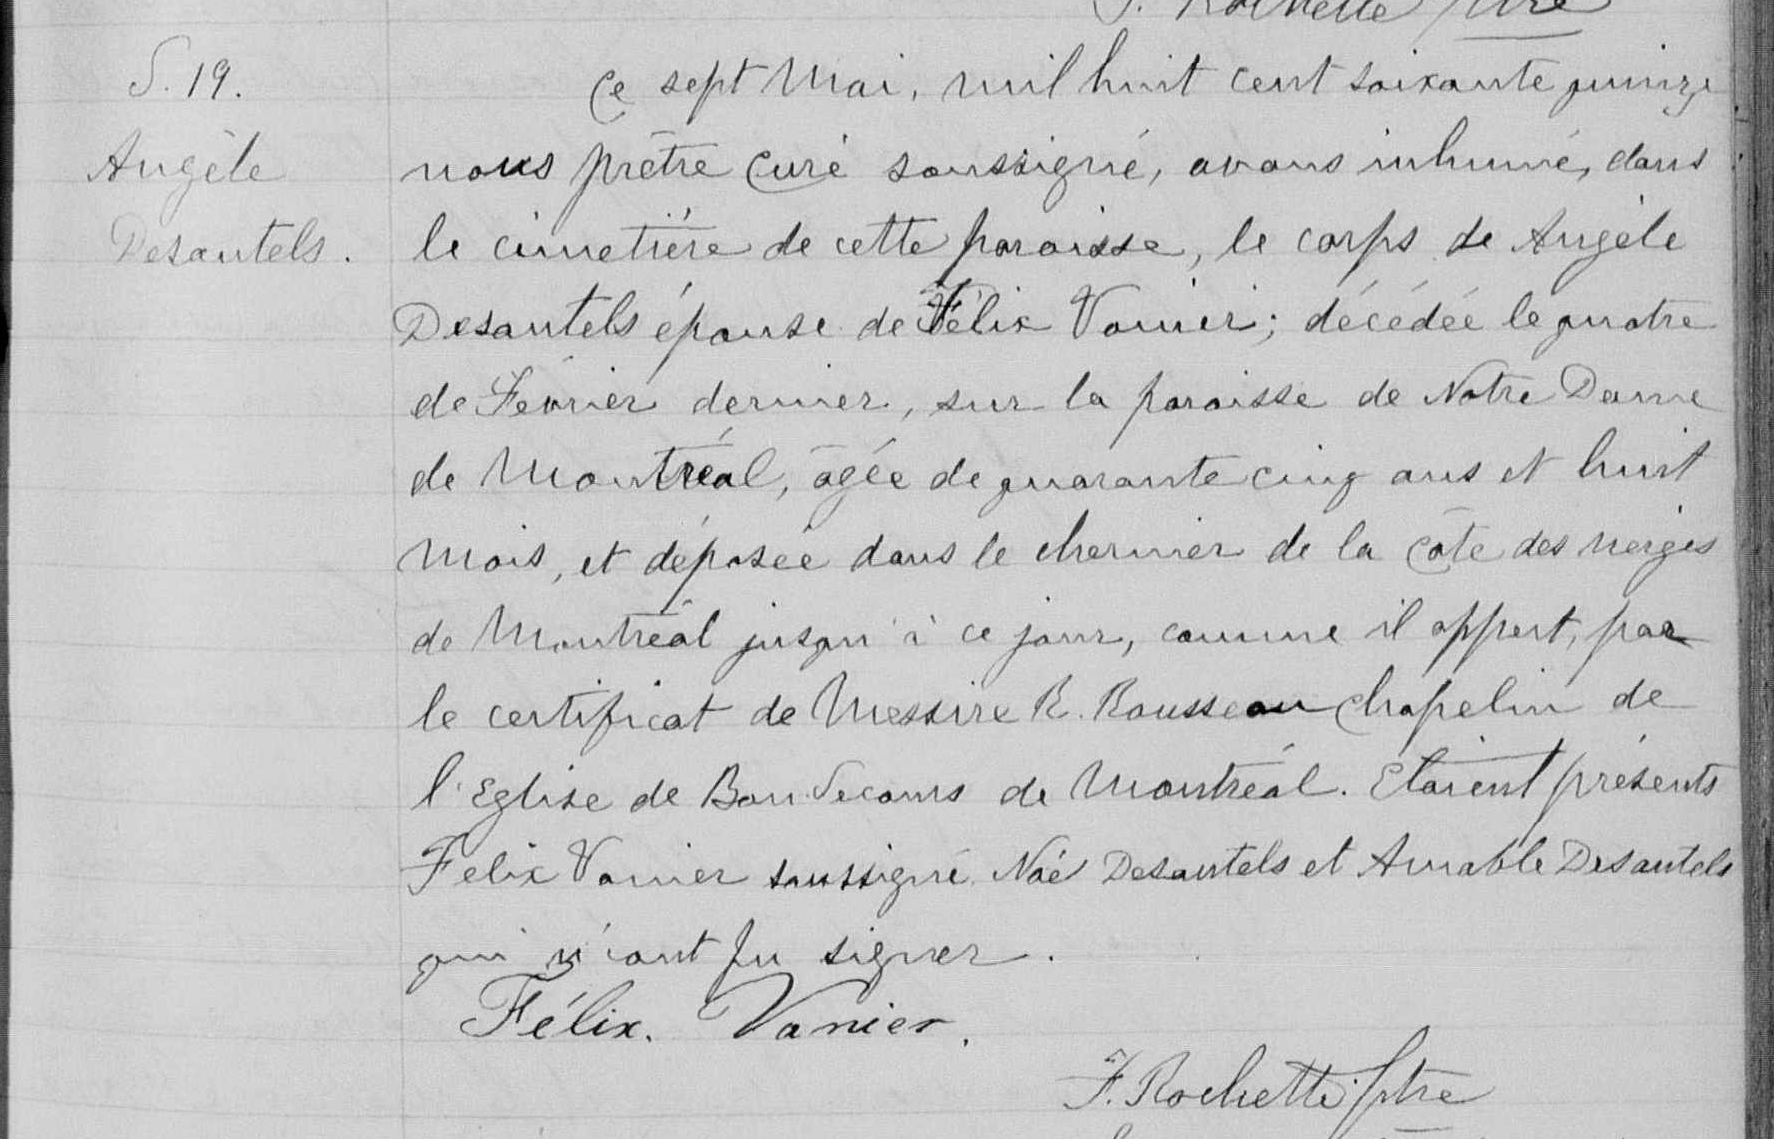 J. Rochette ptre
S. 19.
Angèle
Desautels.
Ce sept Mai, mil huit cent soixante quinze
nous prêtre curé soussigné, avons inhumé, dans
le cimetière de cette paroisse, le corps de Angèle
Desautels épouse de Félix Vanier; décédée le quatre
de Fevrier dernier, sur la paroisse de Notre Dame
de Montréal, âgée de quarante cinq ans et huit
mois, et déposée dans le charnier de la côte des neiges
de Montréal jusqu'à ce jour, comme il appert, par
le certificat de Messire R. Rousseau chapelin de
l'Eglise de Bon Secours de Montréal. Etaient présents
Felix Vanier soussigné Noé Desautels et Amable Desautels
qui n'ont pu signer.
Félix. Vanier.
F. Rochette ptre